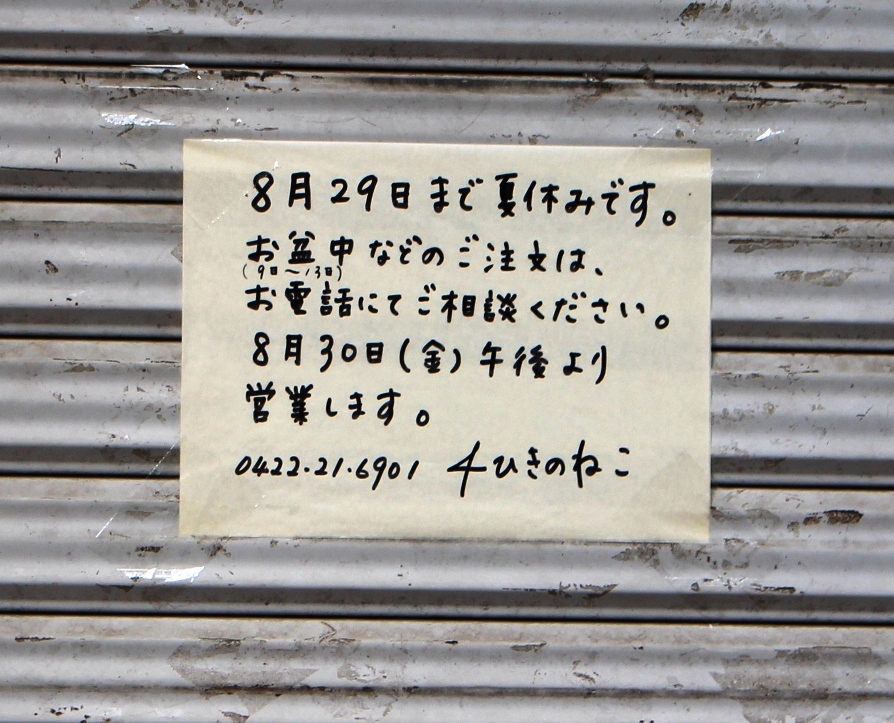 8月29日まで夏休みです。
お盆中などのご注文は、
(9日～13日)
お電話にてご相談ください。
8月30日(金)午後より
営業します。
0422・21・6901 4ひきのねこ